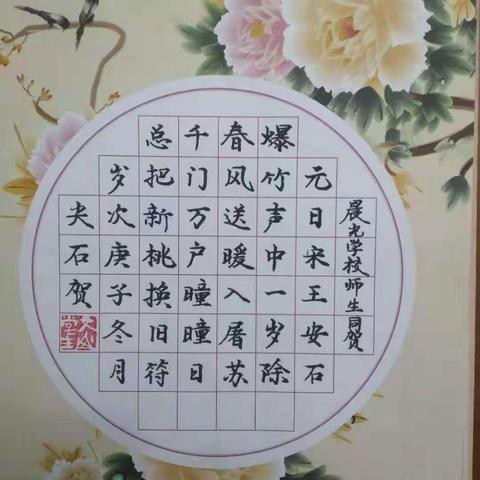 晨光学校师生同贺
元日宋王安石
爆竹声中一岁除
春风送暖入屠苏
千门万户瞳瞳日
总把新桃换旧符
岁次庚子冬月
尖石贺